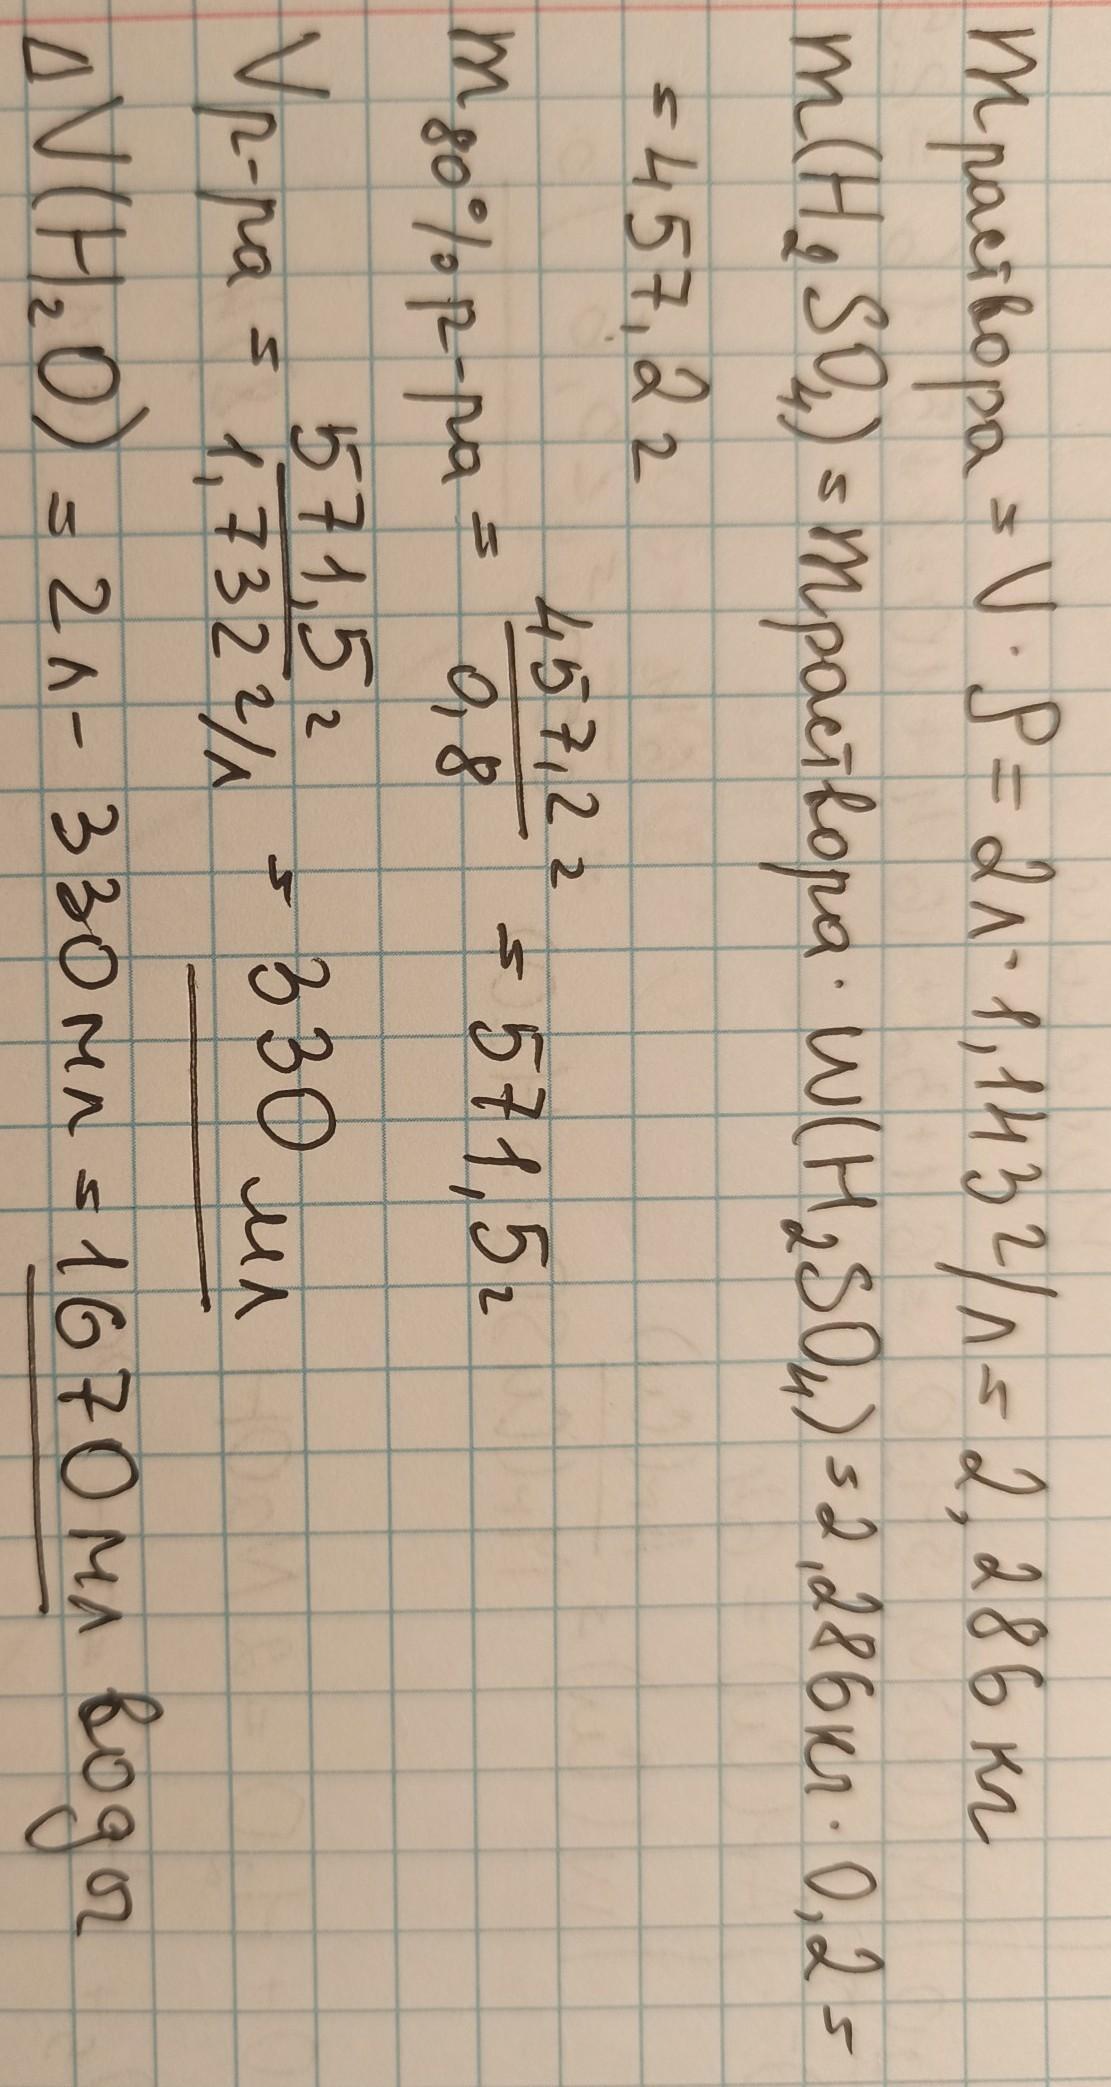 m раствора = V · ρ = 2л · 1,143г/л = 2,286 кг
m(H₂SO₄) = m раствора · w(H₂SO₄) = 2,286кг · 0,2 =
= 457,2 г
m 80% р-ра = 457,2 г / 0,8 = 571,5 г
V р-ра = 571,5 г / 1,732 г/л = 330 мл
ΔV(H₂O) = 2л - 330 мл = 1670 мл воды